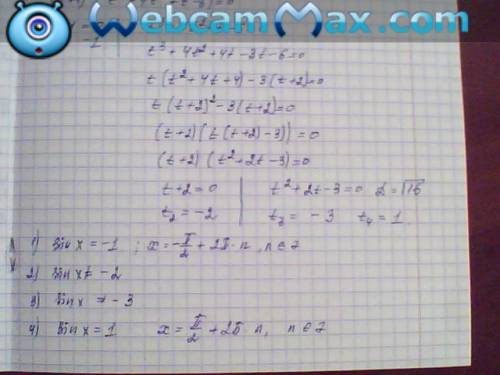 WebcamMax.com
t³ + 4t² + 4t - 3t - 6 = 0
t (t² + 4t + 4) - 3 (t + 2) = 0
t (t + 2)² - 3 (t + 2) = 0
(t + 2) (t (t + 2) - 3)) = 0
(t + 2) (t² + 2t - 3) = 0
t + 2 = 0 | t² + 2t - 3 = 0 D = √16
t₂ = -2 | t₃ = -3 t₄ = 1
1) sin x = -1 ; x = -π/2 + 2π · n, n ∈ Z
2) sin x ≠ -2
3) sin x ≠ -3
4) sin x = 1 x = π/2 + 2π n, n ∈ Z